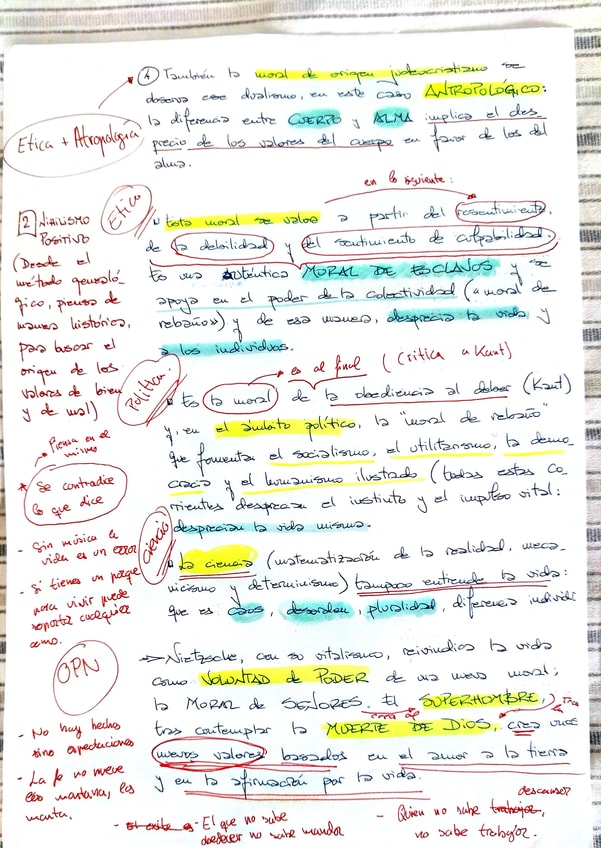 ④ También la moral de origen judeocristiano se
observa ese dualismo, en este caso ANTROPOLÓGICO:
la diferencia entre CUERPO y ALMA implica el des_
precio de los valores del cuerpo en favor de los del
alma.
Etica + Atropología
en lo siguiente:
Etica
• Esta moral se valora a partir del resentimiento,
de la debilidad y del sentimiento de culpabilidad.
Es una auténtica MORAL DE ESCLAVOS y se
apoya en el poder de la colectividad ("moral de
rebaños) y de esa manera, desprecia la vida y
a los individuos.
2 NIHILISMO
POSITIVO
(Desde el
método genealó_
gico, piensa de
manera histórica,
para buscar el
origen de los
valores de bien
y de mal)
es al final (Crítica a Kant)
Política
• Es la moral de la obediencia al deber (Kant)
y, en el ámbito político, la "moral de rebaño"
que fomentan el socialismo, el utilitarismo, la demo_
cracia y el humanismo ilustrado (todas estas co_
rrientes desprecian el instinto y el impulso vital:
desprecian la vida misma.
Piensa en el
mismo
* Se contradice
lo que dice
- Sin música la
vida es un error
- Si tienes un porque
para vivir puede
soportar cualquier
como.
Ciencia
• La ciencia (matematización de la realidad, meca_
nicismo y determinismo) tampoco entiende la vida:
que es caos, desorden, pluralidad, diferencia individ
OPN
→ Nietzsche, con su vitalismo, reivindica la vida
como VOLUNTAD de PODER de una nueva moral:
la MORAL DE SEÑORES. El SUPERHOMBRE,
tras contemplar la MUERTE DE DIOS, crea unos
nuevos valores basados en el amor a la tierra
y en la afirmación por la vida.
- No hay hechos
sino expectaciones
- La fe no mueve
las montañas, las
monta.
- El que no sabe
obedecer no sabe mandar
descansar
- Quien no sabe trabajar,
no sabe trabajar.